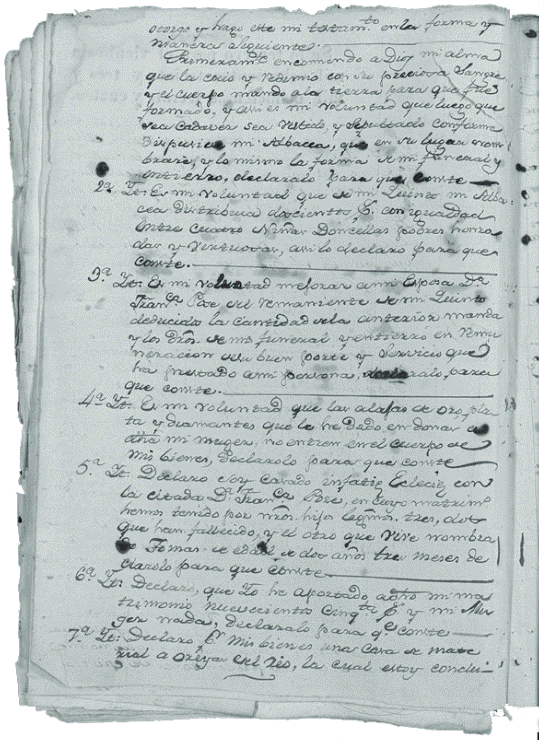 otorgo y hago este mi testam.to en la forma y
manera siguiente.
Primeram.te encomendo a Dios mi alma
que la crio y redimio con su preciosa Sangre
y el cuerpo mando a la tierra para que fue
formado, y asi es mi voluntad que luego que
sea cadaver sea vestido, y sepultado conforme
dispusiere mi Albacea, que en su lugar nom
brare, y lo mismo la forma de mi funeral y
entierro, declaralo para que conste
2.a It. Es mi voluntad que de mi Quinto mi Alba
cea distribua docientos p. con igualdad
entre cuatro Niñas Doncellas pobres honra
das y Vertuosas, asi lo declaro para que
conste.
3.a It. Es mi voluntad mejorar a mi Esposa D.a
Fran.ca Pose del remaniente de mi Quinto
deducido la cantidad de la anterior manda
y los dros. de mi funeral y entierro en remu
neracion de su buen porte y servicio que
ha prestado a mi persona, declaralo, para
que conste.
4.a It. Es mi voluntad que las alajas de oro, pla
ta y diamantes que le he dado en donas a
dha mi muger, no entren en el cuerpo de
mis bienes, declarolo para que conste
5.a It. Declaro soy casado infatie Eclecie con
la citada D.a Fran.ca Pose, en cuyo matrim.o
hemos tenido por nros. hijos legmos. tres, dos
que han fallecido, y el otro que vive nombra
do Tomas de edad de dos años tres meses de
clarolo para que conste
6.a It. Declaro, que Yo he aportado a dho mi ma
trimonio nuevecientos cinq.ta p. y mi Mu
ger nada, declaralo para q.e conste
7.a It. Declaro p.r mis bienes una casa de mate
rial a oriyas del Rio, la cual estoy conclui-